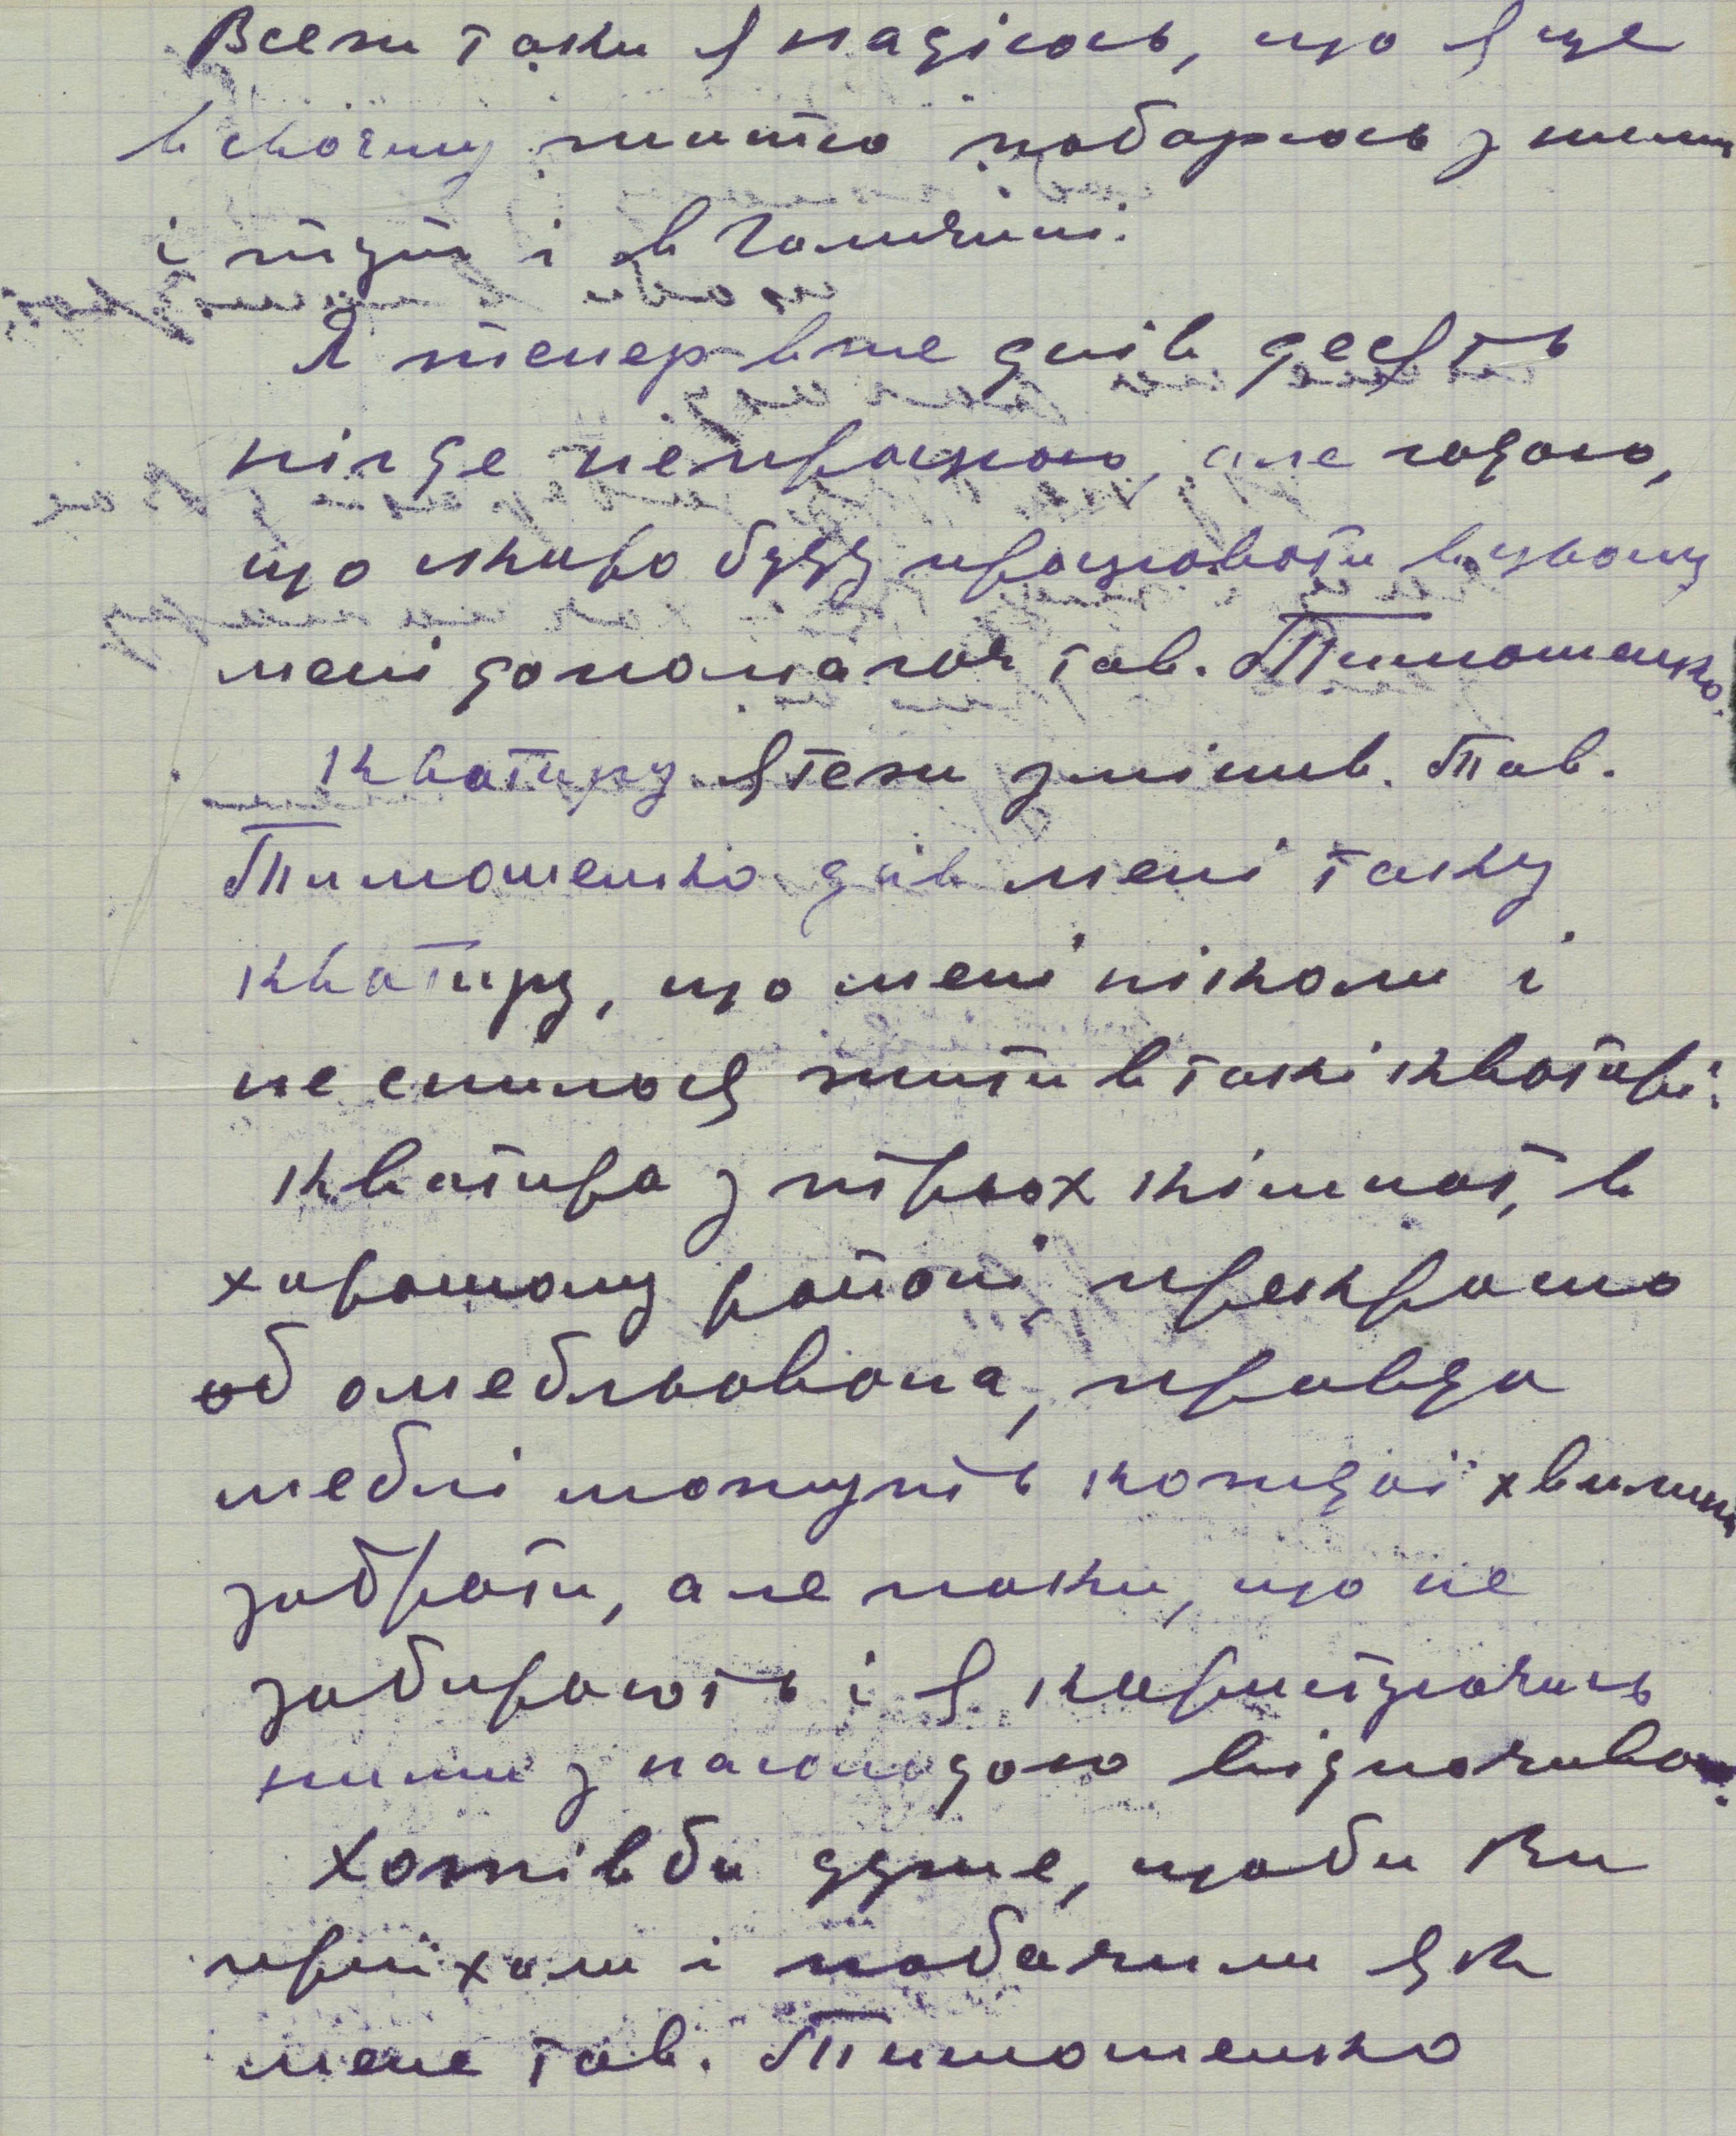 Всеж таки я надіюсь, що я ще
в своєму життю поборюсь з ними
і тут і в Галичині.
Я тепер вже днів десять
нігде непрацюю, але гадаю,
що скоро буду працювати в цьому
мені допоможе тов. Тимошенко.
Кватиру я теж змінив. Тов.
Тимошенко дав мені таку
кватиру, що мені ніколи і
не снилося жити в такі кватирі.
Кватира з трьох кімнат, в
хорошому районі, прекрасно
обомебльована, правда
меблі можуть кождої хвилини
забрати, але поки, що не
забирають і я користуючись
ними з насолодою відпочиваю.
Хотів би дуже, щоби Ви
приїхали і побачили як
мене тов. Тимошенко